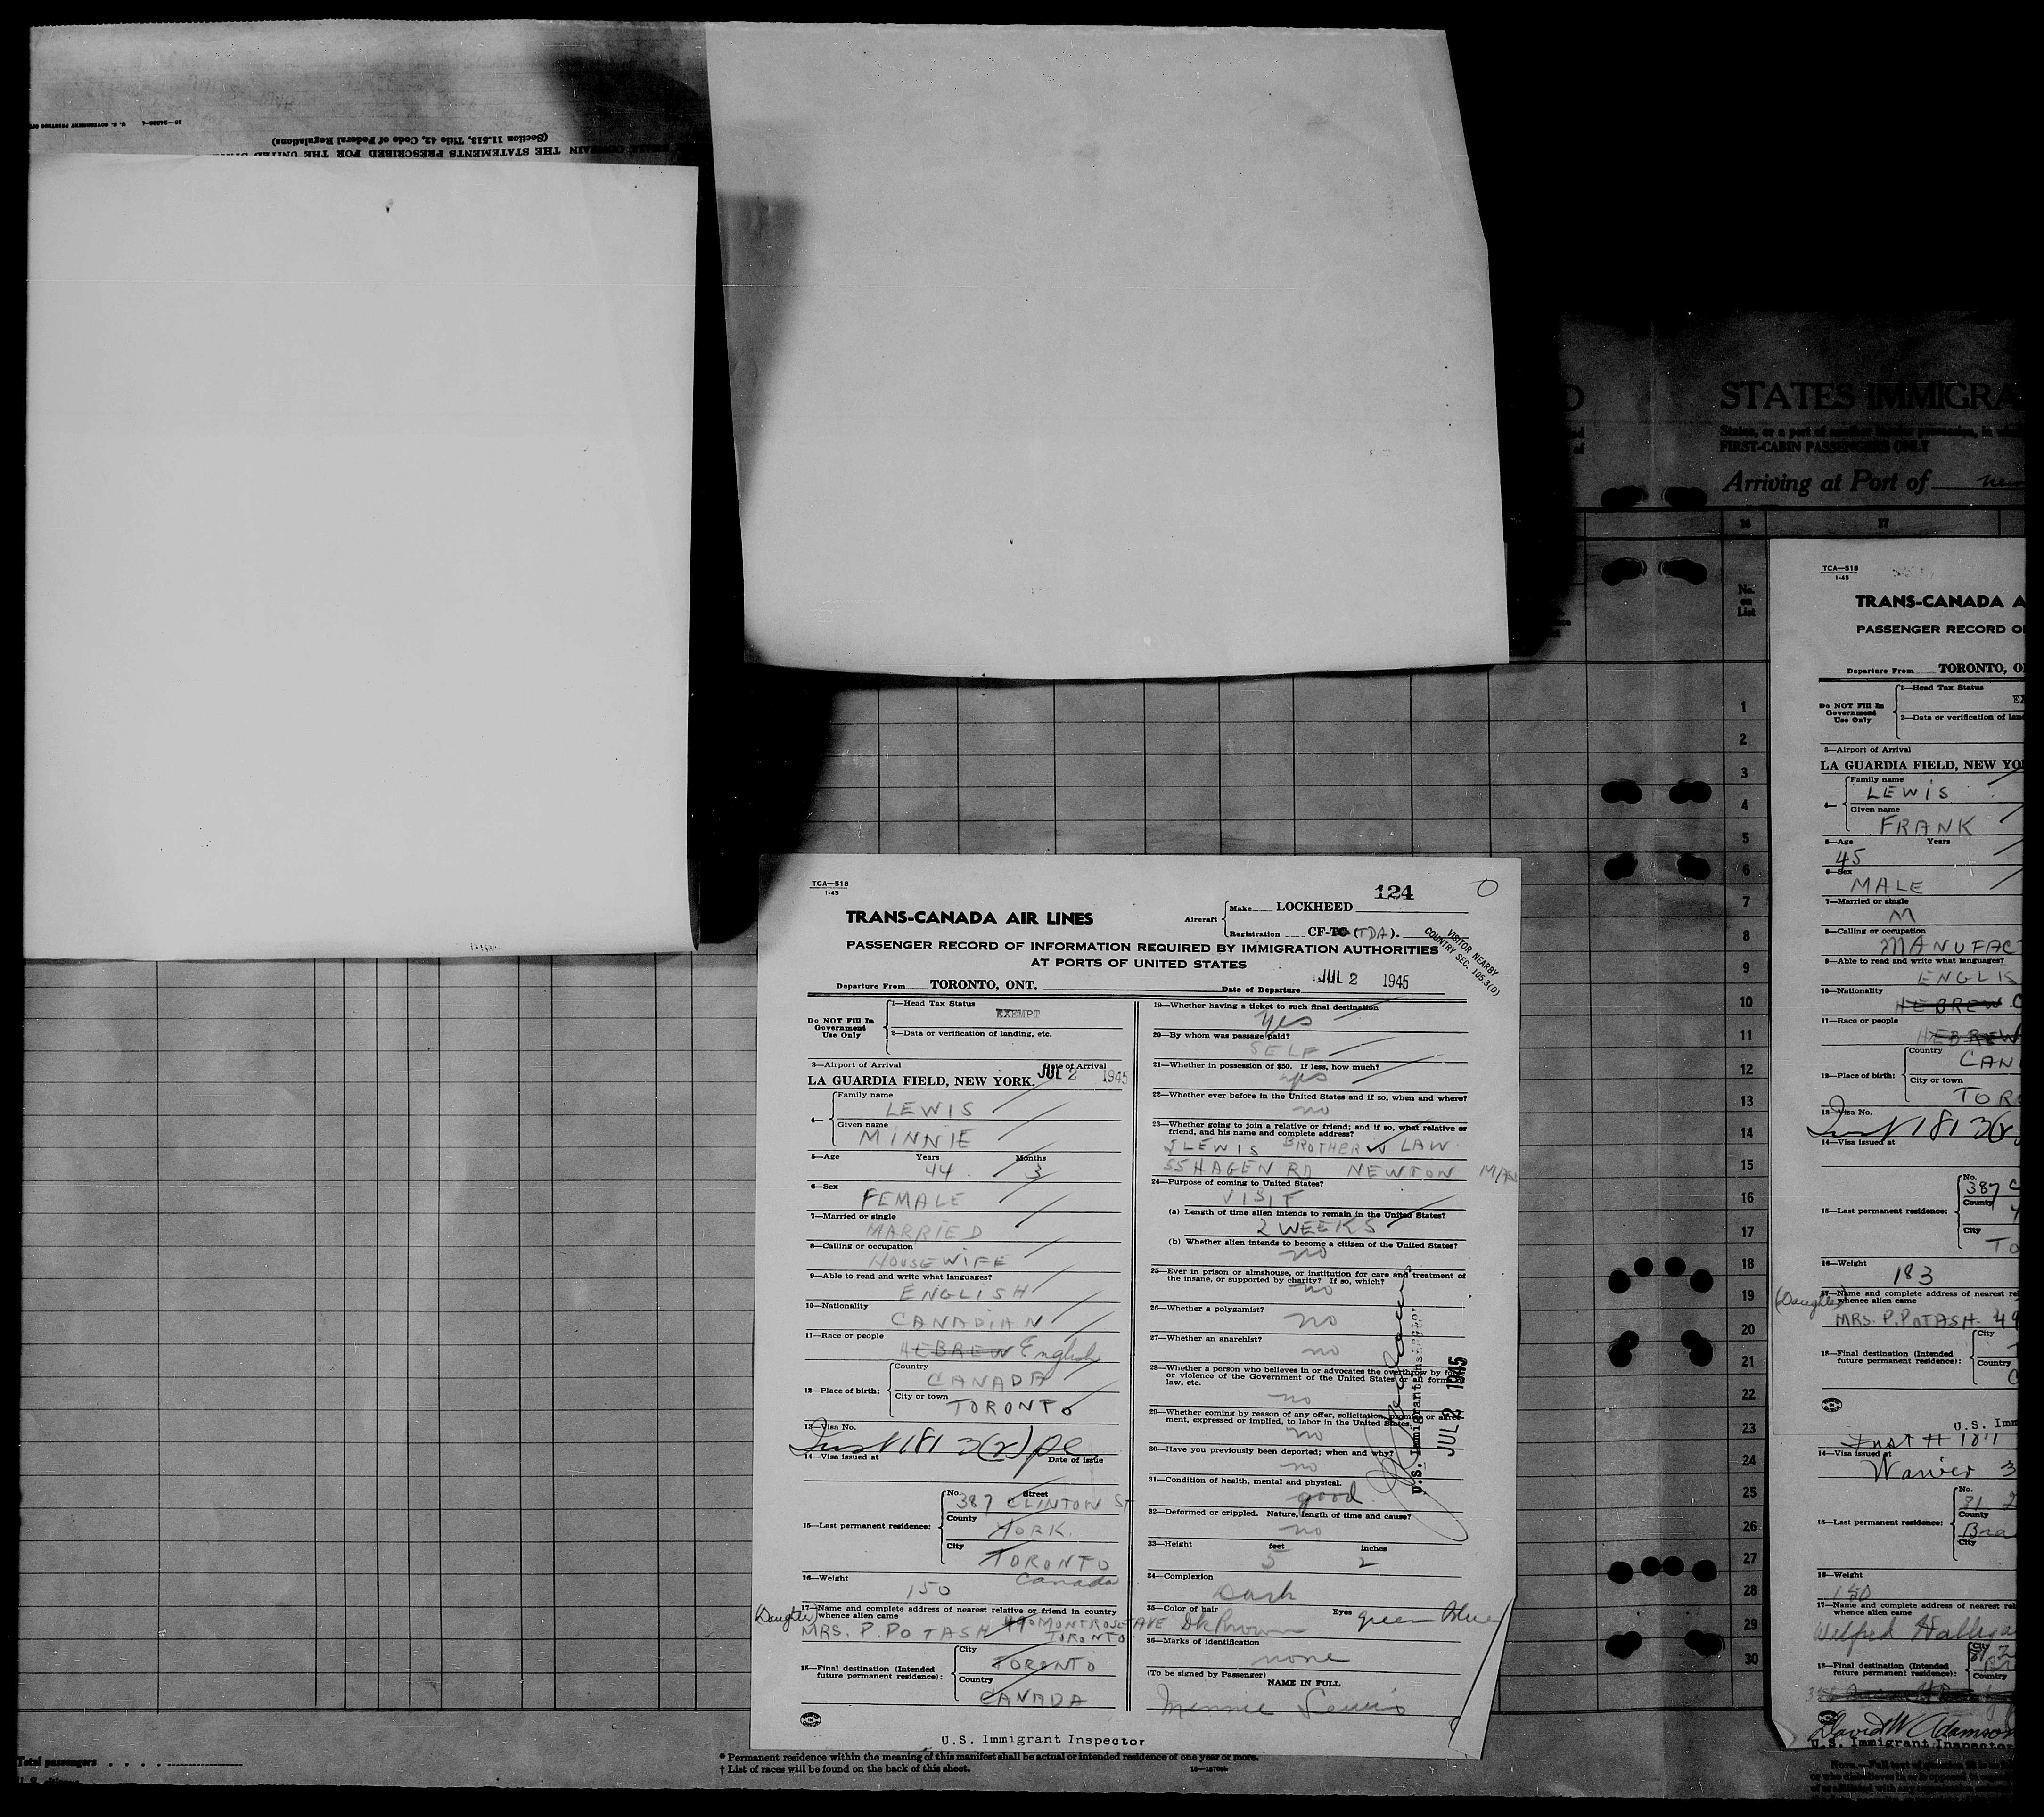 16—24896-1 U. S. GOVERNMENT PRINTING
(Section 11.513, Title 42, Code of Federal Regulations)
THE STATEMENTS PRESCRIBED FOR THE UNITED
TCA—518
1-45
124
TRANS-CANADA AIR LINES
Aircraft
Make LOCKHEED
Registration CF-TC (TDA).
PASSENGER RECORD OF INFORMATION REQUIRED BY IMMIGRATION AUTHORITIES
AT PORTS OF UNITED STATES
VISITOR NEARBY
COUNTRY SEC. 105.3(D)
Departure From TORONTO, ONT.
Date of Departure JUL 2 1945
Do NOT Fill In
Government
Use Only
1—Head Tax Status
EXEMPT
2—Data or verification of landing, etc.
3—Airport of Arrival
Date of Arrival
LA GUARDIA FIELD, NEW YORK. JUL 2 1945
4— Family name
LEWIS
Given name
MINNIE
5—Age Years Months
44 3
6—Sex
FEMALE
7—Married or single
MARRIED
8—Calling or occupation
HOUSEWIFE
9—Able to read and write what languages?
ENGLISH
10—Nationality
CANADIAN
11—Race or people
HEBREW English
12—Place of birth:
Country
CANADA
City or town
TORONTO
13—Visa No.
181 3(2)
14—Visa issued at Date of issue
15—Last permanent residence:
No. Street
387 CLINTON ST
County
YORK
City
TORONTO
Canada
16—Weight
150
(Daughter)
17—Name and complete address of nearest relative or friend in country
whence alien came
MRS. P. POTASH 490 MONTROSE AVE
TORONTO
18—Final destination (Intended
future permanent residence):
City
TORONTO
Country
CANADA
U.S. Immigrant Inspector
19—Whether having a ticket to such final destination
yes
20—By whom was passage paid?
SELF
21—Whether in possession of $50. If less, how much?
yes
22—Whether ever before in the United States and if so, when and where?
no
23—Whether going to join a relative or friend; and if so, what relative or
friend, and his name and complete address?
J LEWIS BROTHER IN LAW
55 HAGEN RD NEWTON MASS
24—Purpose of coming to United States?
VISIT
(a) Length of time alien intends to remain in the United States?
2 WEEKS
(b) Whether alien intends to become a citizen of the United States?
no
25—Ever in prison or almshouse, or institution for care and treatment of
the insane, or supported by charity? If so, which?
no
26—Whether a polygamist?
no
27—Whether an anarchist?
no
28—Whether a person who believes in or advocates the overthrow by force
or violence of the Government of the United States or all forms of
law, etc.
no
29—Whether coming by reason of any offer, solicitation, promise or agree-
ment, expressed or implied, to labor in the United States.
no
30—Have you previously been deported; when and why?
no
31—Condition of health, mental and physical.
good
32—Deformed or crippled. Nature, length of time and cause?
no
33—Height feet inches
5 2
34—Complexion
Dark
35—Color of hair Eyes
Dk Brown green Blue
36—Marks of identification
none
(To be signed by Passenger)
NAME IN FULL
Minnie Lewis
U.S. Immigrant Inspector
JUL 2 1945
Total passengers
* Permanent residence within the meaning of this manifest shall be actual or intended residence of one year or more.
† List of races will be found on the back of this sheet.
STATES IMMIGRA
FIRST-CABIN PASSENGERS ONLY
Arriving at Port of
16 17
No.
on
List
1
2
3
4
5
6
7
8
9
10
11
12
13
14
15
16
17
18
19
20
21
22
23
24
25
26
27
28
29
30
TCA—518
1-45
TRANS-CANADA A
PASSENGER RECORD O
Departure From TORONTO, O
Do NOT Fill In
Government
Use Only
1—Head Tax Status
EX
2—Data or verification of lan
3—Airport of Arrival
LA GUARDIA FIELD, NEW YO
4— Family name
LEWIS
Given name
FRANK
5—Age Years
45
6—Sex
MALE
7—Married or single
M
8—Calling or occupation
MANUFAC
9—Able to read and write what languages?
ENGLIS
10—Nationality
HEBREW C
11—Race or people
HEBREW
12—Place of birth:
Country
CAN
City or town
TOR
13—Visa No.
181 3(2
14—Visa issued at
15—Last permanent residence:
No.
387 C
County
City
TO
16—Weight
183
(Daughter)
17—Name and complete address of nearest rel
whence alien came
MRS. P. POTASH 49
18—Final destination (Intended
future permanent residence):
City
Country
C
U.S. Imm
14—Visa issued at
15—Last permanent residence:
No.
31 2
County
Bra
City
16—Weight
150
17—Name and complete address of nearest rel
whence alien came
Wilfred
18—Final destination (Intended
future permanent residence):
City
Country
David W Adamson
U.S. Immigrant Inspector